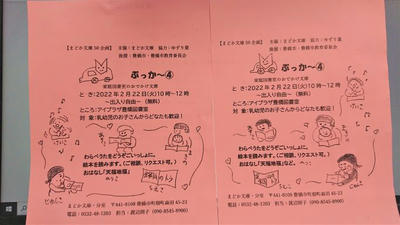 【まどか文庫50企画】 主催:まどか文庫 協力:ゆずり葉
後援:豊橋市・豊橋市教育委員会
ぶっか～④
家庭図書室のおでかけ文庫
とき:2022年2月22日(火)10時~12時
~出入り自由~ (無料)
ところ:アイプラザ豊橋図書室
対 象:乳幼児のお子さんからどなたも歓迎!
わらべうたをどうぞごいっしょに。
絵本を読みます。(ご相談、リクエスト可。)
おはなし「天福地福」
まどか文庫・分室 〒441-8109 豊橋市町畑町森田45-23
電話:0532-48-1203
【まどか文庫50企画】 主催:まどか文庫 協力:ゆずり葉
後援:豊橋市・豊橋市教育委員会
ぶっか～④
家庭図書室のおでかけ文庫
とき:2022年2月22日(火)10時~12時
~出入り自由~ (無料)
ところ:アイプラザ豊橋図書室
対 象:乳幼児のお子さんからどなたも歓迎!
わらべうたをどうぞごいっしょに。
絵本を読みます。(ご相談、リクエスト可。)
おはなし「天福地福」など。
まどか文庫・分室 〒441-8109 豊橋市町畑町森田45-23
電話:0532-48-1203